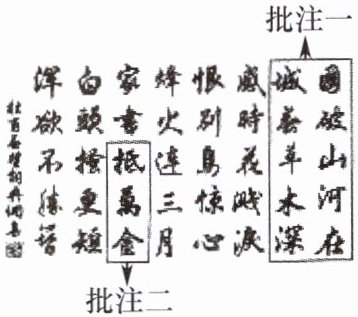 批注一
國破山河在
城春草木深
感時花濺淚
恨別鳥驚心
烽火連三月
家書抵萬金
白頭搔更短
渾欲不勝簪
杜甫春望
批注二